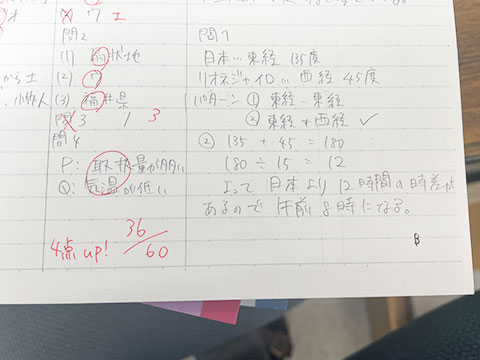 ウ エ
問2
(1) 扇状地
から土 (2) ウ
、小作人 (3) 福井県
問3 1 3
問4
P: 取れ量が多い
Q: 気温が低い
4点up! 36/60
問1
日本…東経 135度
リオネジャイロ…西経 45度
パターン ① 東経-東経
② 東経+西経 ✓
② 135 + 45 = 180
180 ÷ 15 = 12
よって 日本より 12時間の時差が
あるので 午前8時になる。
B